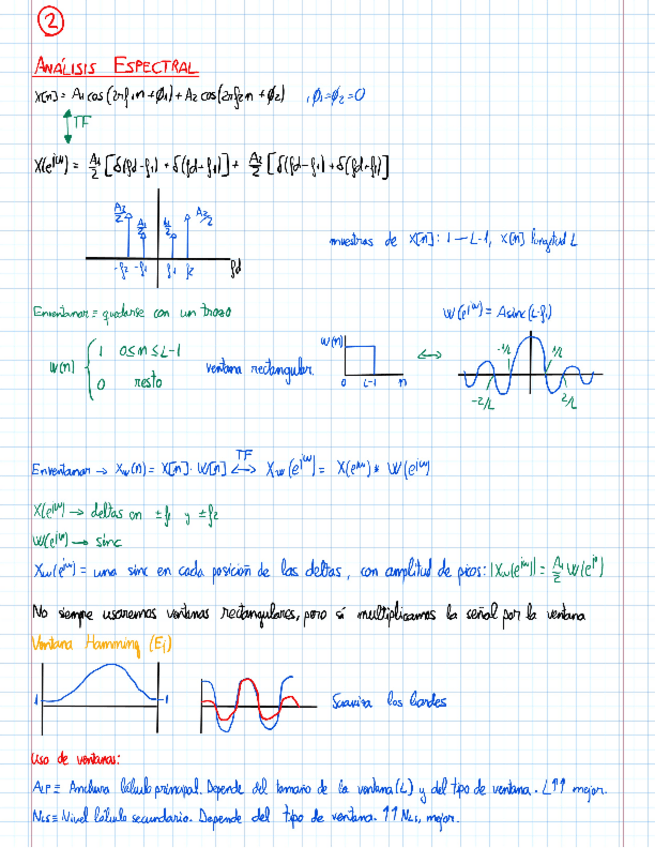 2
ANÁLISIS ESPECTRAL
X[n] = A₁ cos(2πf₁n + ϕ₁) + A₂ cos(2πf₂n + ϕ₂) , ϕ₁=ϕ₂=0
TF
X(e^jω) = A₁/2 [δ(fd-f₁) + δ(fd+f₁)] + A₂/2 [δ(fd-f₁) + δ(fd+f₁)]
A₂/2 A₁/2 A₁/2 A₂/2
muestras de X[n]: 1 — L-1, X[n] longitud L
-f₂ -f₁ f₁ f₂ fd
Enventanar = quedarse con un trozo
W(e^jω) = Asinc(L·f₁)
W(n) { 1 0≤n≤L-1
0 resto
ventana rectangular
W(n) 0 L-1 n
↔
-1/L 1/L
-2/L 2/L
Enventanar → Xw(n) = X[n] · W[n] ↔ TF Xw(e^jω) = X(e^jω) * W(e^jω)
X(e^jω) → deltas en ±f₁ y ±f₂
W(e^jω) → sinc
Xw(e^jω) = una sinc en cada posición de las deltas, con amplitud de picos: |Xw(e^jω)| = A₁/2 W(e^j)
No siempre usaremos ventanas rectangulares, pero sí multiplicamos la señal por la ventana
Ventana Hamming (Ej)
1 1
Suaviza los bordes
Uso de ventanas:
ALP ≡ Anchura lóbulo principal. Depende del tamaño de la ventana (L) y del tipo de ventana. L↑↑ mejor.
NLS ≡ Nivel lóbulo secundario. Depende del tipo de ventana. ↑↑ NLS, mejor.